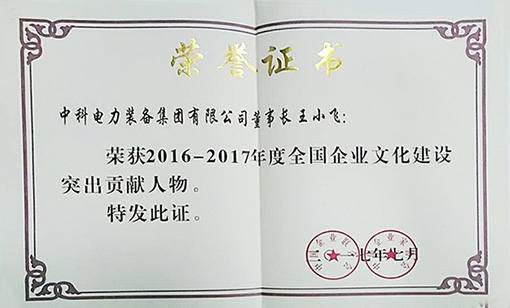 荣誉证书
中科电力装备集团有限公司董事长王小飞：
荣获2016-2017年度全国企业文化建设
突出贡献人物。
特发此证。
二〇一七年七月